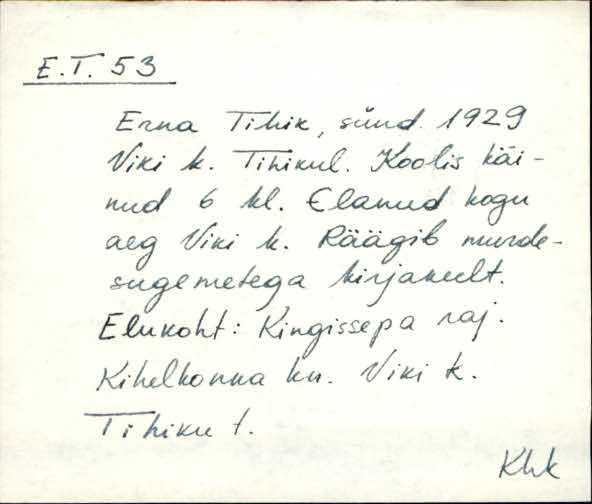 E.T. 53
Erna Tihik, sünd. 1929
Viki k. Tihikul. Koolis käi-
nud 6 kl. Elanud kogu
aeg Viki k. Räägib murde-
sugemetega kirjakeelt.
Elukoht: Kingissepa raj.
Kihelkonna kn. Viki k.
Tihiku t.
Khk